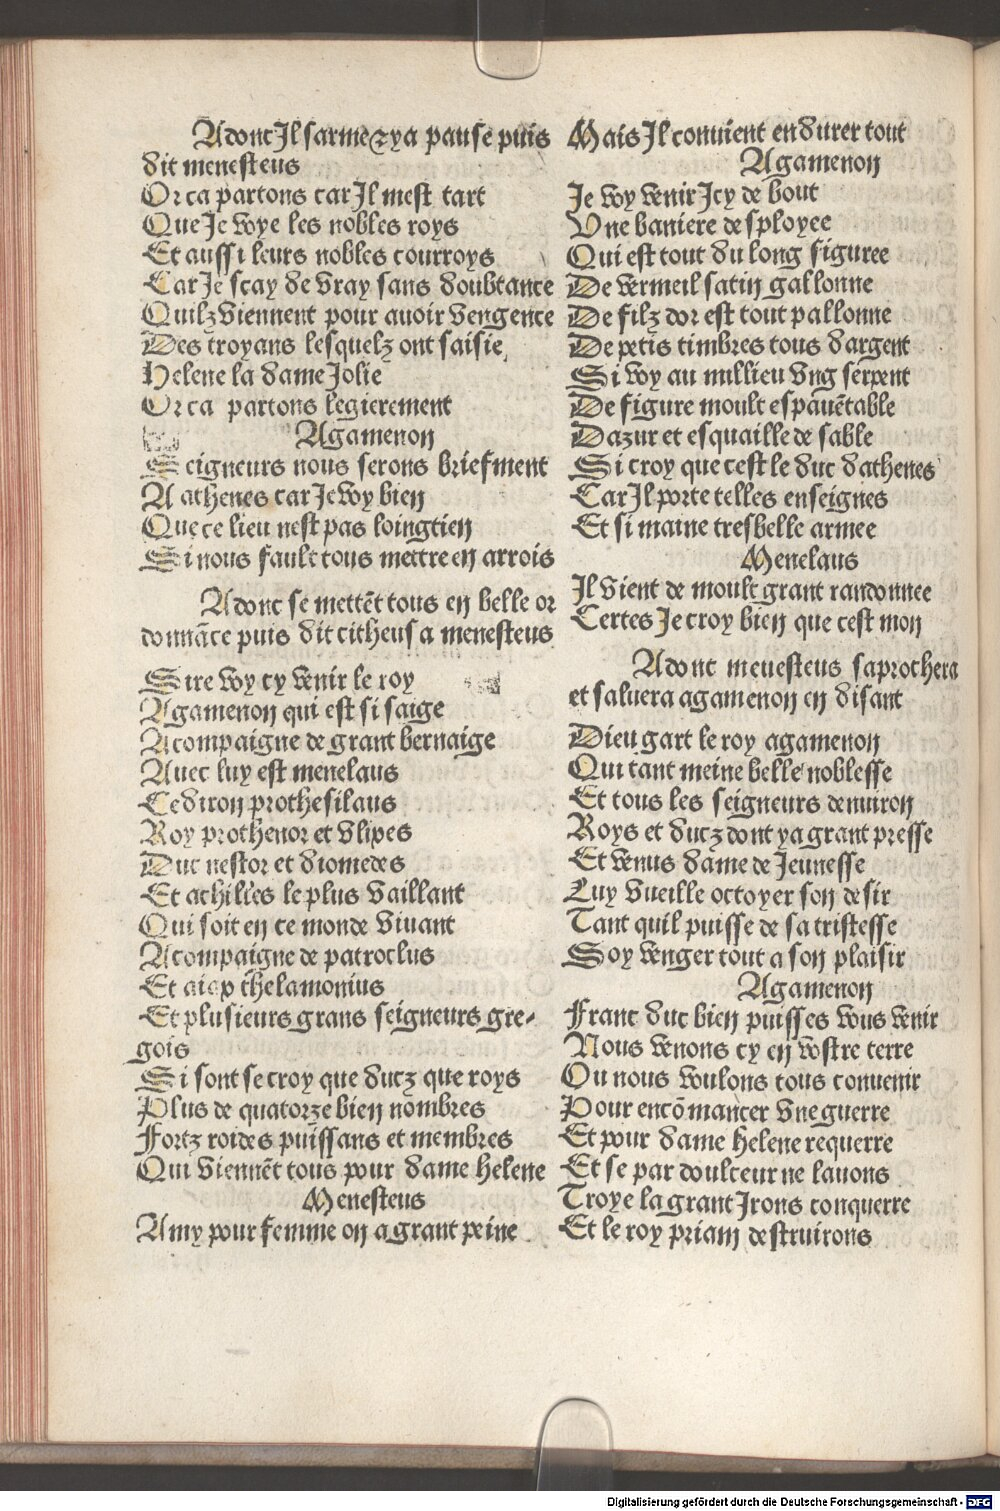 Adonc Il sarme & ya pause puis
dit menesteus
Or ca partons car Il mest tart
Que Je voye les nobles roys
Et aussi leurs nobles courroys
Car Je scay de vray sans doubtance
Quilz viennent pour auoir vengence
Des troyans lesquelz ont saisie
Helene la dame Jolie
Or ca partons legierement
Agamenon
Seigneurs nous serons briefment
A athenes car Je voy bien
Que ce lieu nest pas loingtien
Si nous fault tous mettre en arrois
Adonc se mettēt tous en belle or
donnāce puis dit citheus a menesteus
Sire voy cy venir le roy
Agamenon qui est si saige
Acompaigne de grant bernaige
Auec luy est menelaus
Cediron prothesilaus
Roy prothenor et vlixes
Duc nestor et diomedes
Et achilles le plus vaillant
Qui soit en ce monde viuant
Acompaigne de patroclus
Et aiax thelamonius
Et plusieurs grans seigneurs gre-
gois
Si sont se croy que ducz que roys
Plus de quatorze bien nombres
Fortz roides puissans et membres
Qui viennēt tous pour dame helene
Menesteus
Amy pour femme on a grant peine
Mais Il conuient endurer tout
Agamenon
Je voy venir Icy de bout
Vne baniere desployee
Qui est tout du long figuree
De vermeil satin gallonne
De filz dor est tout pallonne
De petis timbres tous dargent
Si voy au millieu vng serpent
De figure moult espauētable
Dazur et esquaille de sable
Si croy que cest le duc dathenes
Car Il porte telles enseignes
Et si maine tresbelle armee
Menelaus
Il vient de moult grant randonnee
Certes Je croy bien que cest mon
Adonc meuesteus saprochera
et saluera agamenon en disant
Dieu gart le roy agamenon
Qui tant meine belle noblesse
Et tous les seigneurs denuiron
Roys et ducz dont ya grant presse
Et venus dame de Jeunesse
Luy vueille octoyer son desir
Tant quil puisse de sa tristesse
Soy venger tout a son plaisir
Agamenon
Franc duc bien puisses vous venir
Nous venons cy en vostre terre
Ou nous voulons tous conuenir
Pour encōmancer vne guerre
Et pour dame helene requerre
Et se par doulceur ne lauons
Troye la grant Irons conquerre
Et le roy priam destruirons
Digitalisierung gefördert durch die Deutsche Forschungsgemeinschaft - DFG